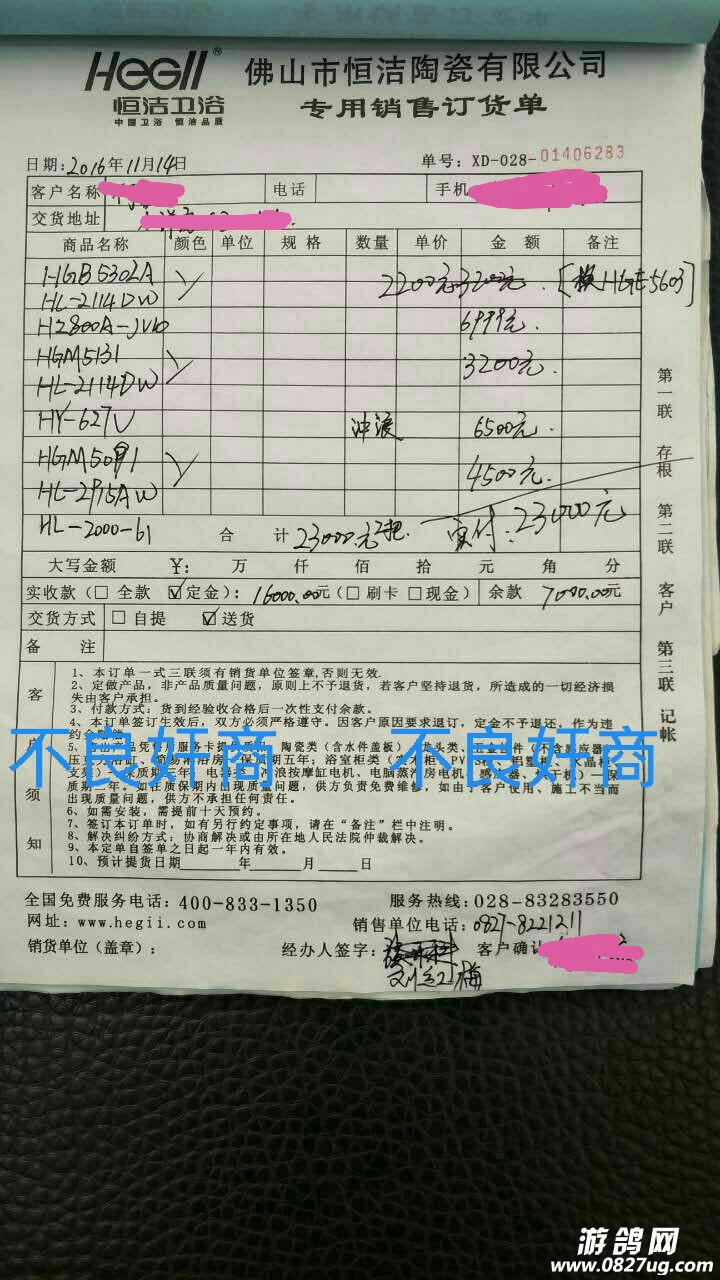 HeGII®
恒洁卫浴
中国卫浴 恒洁品质
佛山市恒洁陶瓷有限公司
专用销售订货单
日期：2016年11月14日
单号：XD-028-01406283
客户名称 电话 手机
交货地址
商品名称 颜色 单位 规格 数量 单价 金额 备注
HGB5302A 2200元 3200元. [换HGE5603]
HL-2114DW
HZ800A-JV10 6999元.
HGM5131 3200元.
HL-2114DW
HY-627V 冲浪 6500元.
HGM5091 4500元.
HL-2975AW
HL-2000-61 合计 23000元 2把. 实付：23000元
大写金额 ¥： 万 仟 佰 拾 元 角 分
实收款（□ 全款 ☑ 定金）：16000.00元（□ 刷卡 □ 现金） 余款 7000.00元
交货方式 □ 自提 ☑ 送货
备注
客户须知
1、本订单一式三联须有销货单位签章,否则无效.
2、定做产品，非产品质量问题，原则上不予退货，若客户坚持退货，所造成的一切经济损
失由客户承担。
3、付款方式：货到经验收合格后一次性支付余款。
4、本订单签订生效后，双方必须严格遵守。因客户原因要求退订，定金不予退还，作为违
质期二年。如在质保期内出现质量问题，供方负责免费维修，如由于客户使用、施工不当而
出现质量问题，供方不承担任何责任。
6、如需安装，需提前十天预约。
7、签订本订单时，如有另行约定事项，请在“备注”栏中注明。
8、解决纠纷方式：协商解决或由所在地人民法院仲裁解决。
9、本定单自签单之日起一年内有效。
10、预计提货日期 年 月 日
不良奸商 不良奸商
第一联 存根 第二联 客户 第三联 记帐
全国免费服务电话：400-833-1350
服务热线：028-83283550
网址：www.hegii.com
销售单位电话：0827-8221211
销货单位（盖章）：
经办人签字：
客户确认
刘红梅
游鸽网
www.0827ug.com